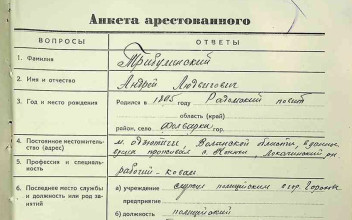 Анкета арестованного
ВОПРОСЫ
ОТВЕТЫ
1. Фамилия
Трибулинский
2. Имя и отчество
Андрей Людвигович
3. Год и место рождения
Родился в 1905 году Радомский повит
область (край)
район, село. Фольварки гор.
4. Постоянное местожительство (адрес)
м. Волынской области, в данное
время проживал
5. Профессия и специальность
рабочий - коваль
6. Последнее место службы и должность или род занятий
а) учреждение служил полицейским в гор. Горохове
предприятие
б) должность полицейский